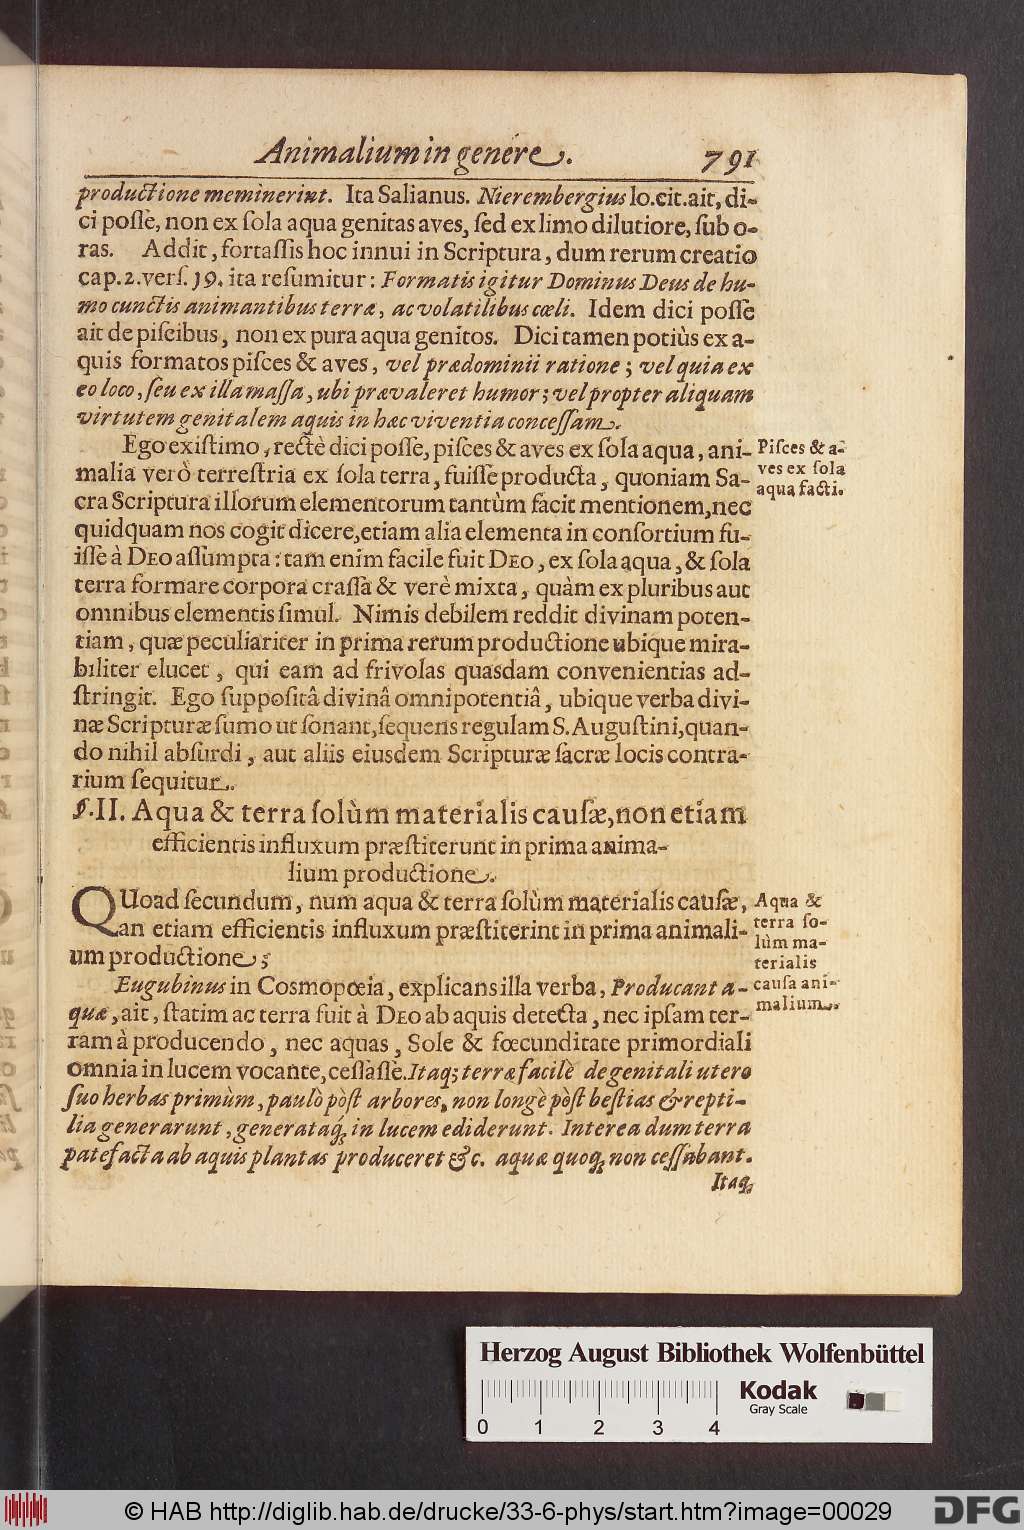 Animalium in genere. 791
productione meminerint. Ita Salianus. Nierembergius lo.cit.ait, di-
ci posse, non ex sola aqua genitas aves, sed ex limo dilutiore, sub o-
ras. Addit, fortassis hoc innui in Scriptura, dum rerum creatio
cap.2.vers.19. ita resumitur: Formatis igitur Dominus Deus de hu-
mo cunctis animantibus terræ, ac volatilibus cœli. Idem dici posse
ait de piscibus, non ex pura aqua genitos. Dici tamen potiùs ex a-
quis formatos pisces & aves, vel prædominii ratione; vel quia ex
eo loco, seu ex illa massa, ubi prævaleret humor; vel propter aliquam
virtutem genitalem aquis in hæc viventia concessam.
Ego existimo, rectè dici posse, pisces & aves ex sola aqua, ani-
malia verò terrestria ex sola terra, fuisse producta, quoniam Sa-
cra Scriptura illorum elementorum tantùm facit mentionem, nec
quidquam nos cogit dicere, etiam alia elementa in consortium fu-
isse à DEO assumpta: tam enim facile fuit DEO, ex sola aqua, & sola
terra formare corpora crassa & verè mixta, quàm ex pluribus aut
omnibus elementis simul. Nimis debilem reddit divinam poten-
tiam, quæ peculiariter in prima rerum productione ubique mira-
biliter elucet, qui eam ad frivolas quasdam convenientias ad-
stringit. Ego suppositâ divinâ omnipotentiâ, ubique verba divi-
næ Scripturæ sumo ut sonant, sequens regulam S. Augustini, quan-
do nihil absurdi, aut aliis eiusdem Scripturæ sacræ locis contra-
rium sequitur.
Pisces & a-
ves ex sola
aqua facti.
§.II. Aqua & terra solùm materialis causæ, non etiam
efficientis influxum præstiterunt in prima anima-
lium productione.
QUoad secundum, num aqua & terra solùm materialis causæ,
an etiam efficientis influxum præstiterint in prima animali-
um productione;
Aqua &
terra so-
lùm ma-
terialis
causa ani-
malium.
Eugubinus in Cosmopœia, explicans illa verba, Producant a-
quæ, ait, statim ac terra fuit à DEO ab aquis detecta, nec ipsam ter-
ram à producendo, nec aquas, Sole & fœcunditate primordiali
omnia in lucem vocante, cessasse. Itaq; terræ facilè de genitali utero
suo herbas primùm, paulò pòst arbores, non longè pòst bestias & repti-
lia generarunt, generataq; in lucem ediderunt. Interea dum terra
patefacta ab aquis plantas produceret &c. aquæ quoq; non cessabant.
Itaq;
Herzog August Bibliothek Wolfenbüttel
Kodak
Gray Scale
0 1 2 3 4
© HAB http://diglib.hab.de/drucke/33-6-phys/start.htm?image=00029
DFG